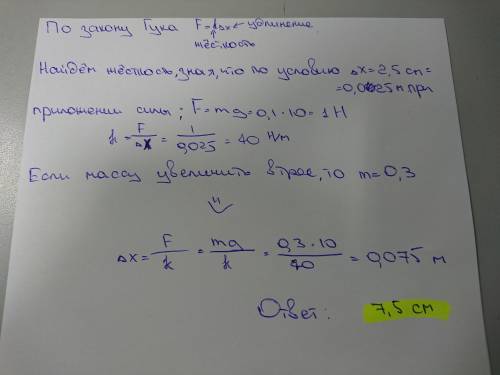 По закону Гука F=kΔx ← удлинение
жёсткость
Найдём жёсткость, зная, что по условию Δx=2,5 см=
=0,025 м при
приложении силы; F=mg=0,1·10=1Н
k = F/Δx = 1/0,025 = 40 Н/м
Если массу увеличить втрое, то m=0,3
Δx = F/k = mg/k = 0,3·10/40 = 0,075 м
Ответ: 7,5 см